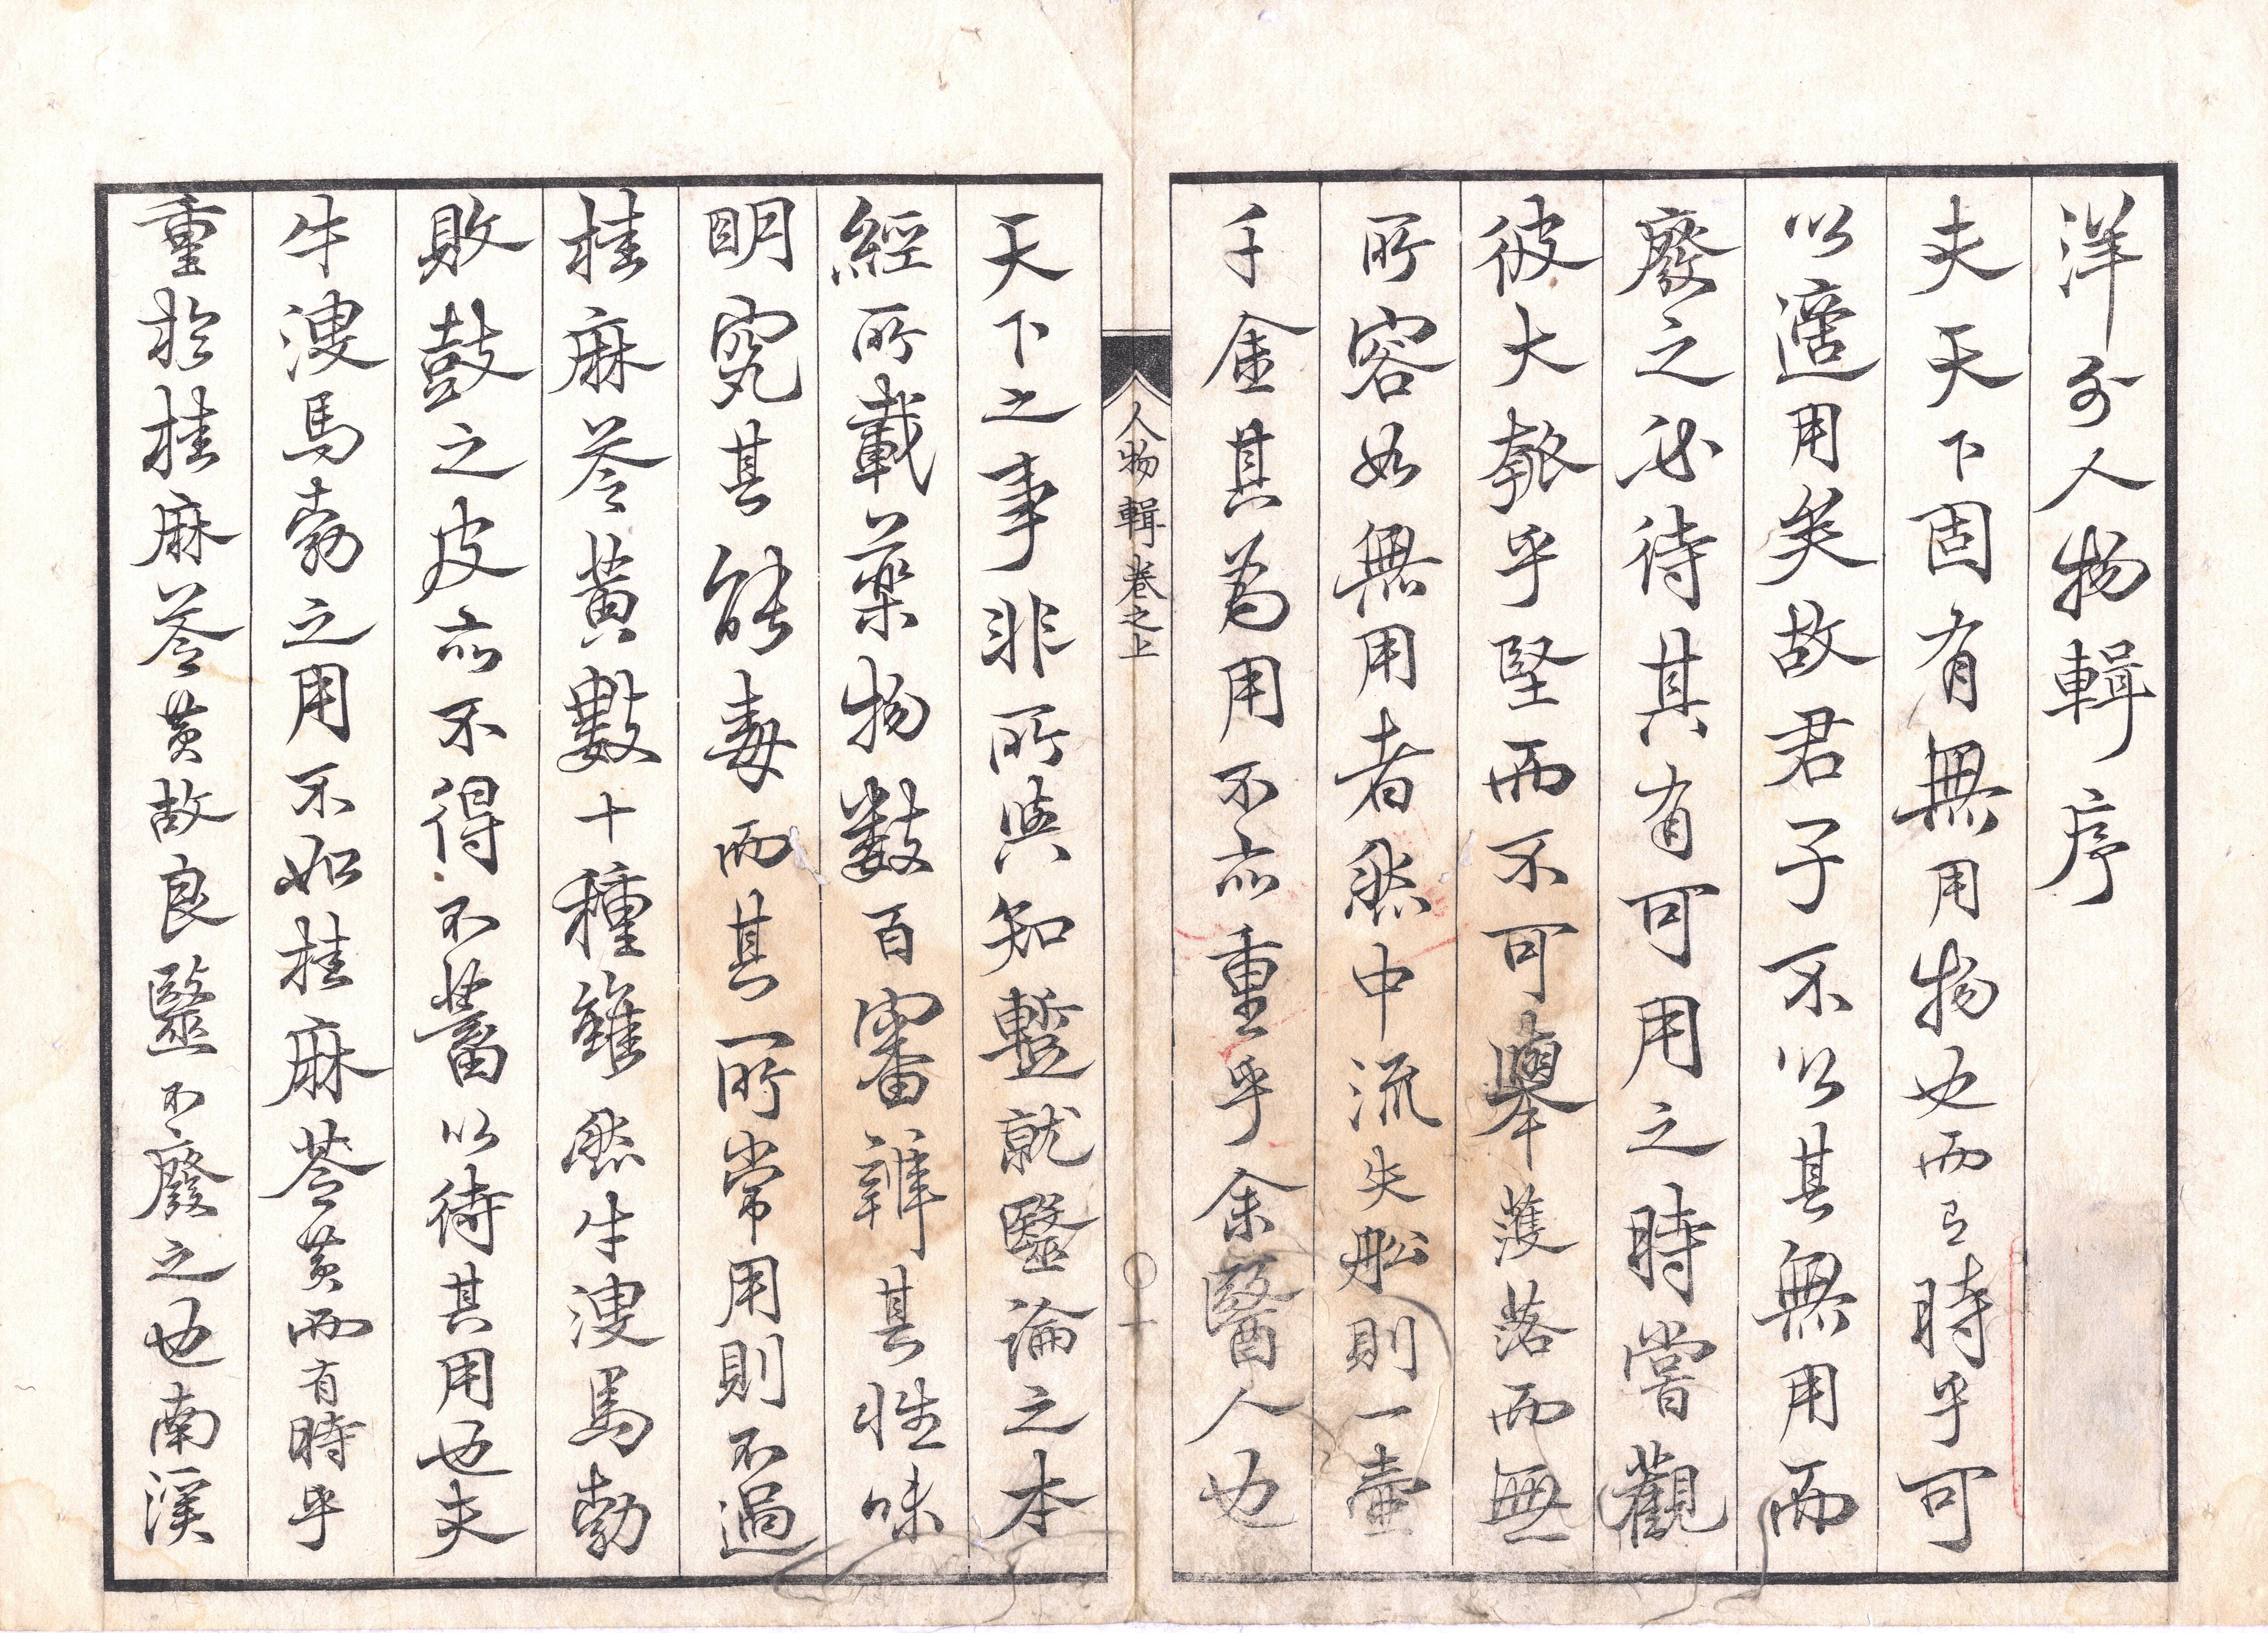 洋外人物輯序
夫天下固有無用物也而有時乎可
以適用矣故君子不以其無用而
廢之必待其有可用之時嘗觀
彼大瓠乎堅而不可舉濩落而無
所容如無用者然中流失船則一壷
千金其為用不亦重乎余醫人也
人物輯巻之上
〇一
天下之事非所與知蹔就毉論之本
經所載藥物数百審辨其性味
明究其能毒而其所常用則不過
桂麻苓黄數十種雖然牛溲馬勃
敗鼓之皮亦不得不蓄以待其用也夫
牛溲馬勃之用不如桂麻苓黄而有時乎
重於桂麻苓黄故良毉不廢之也南溪